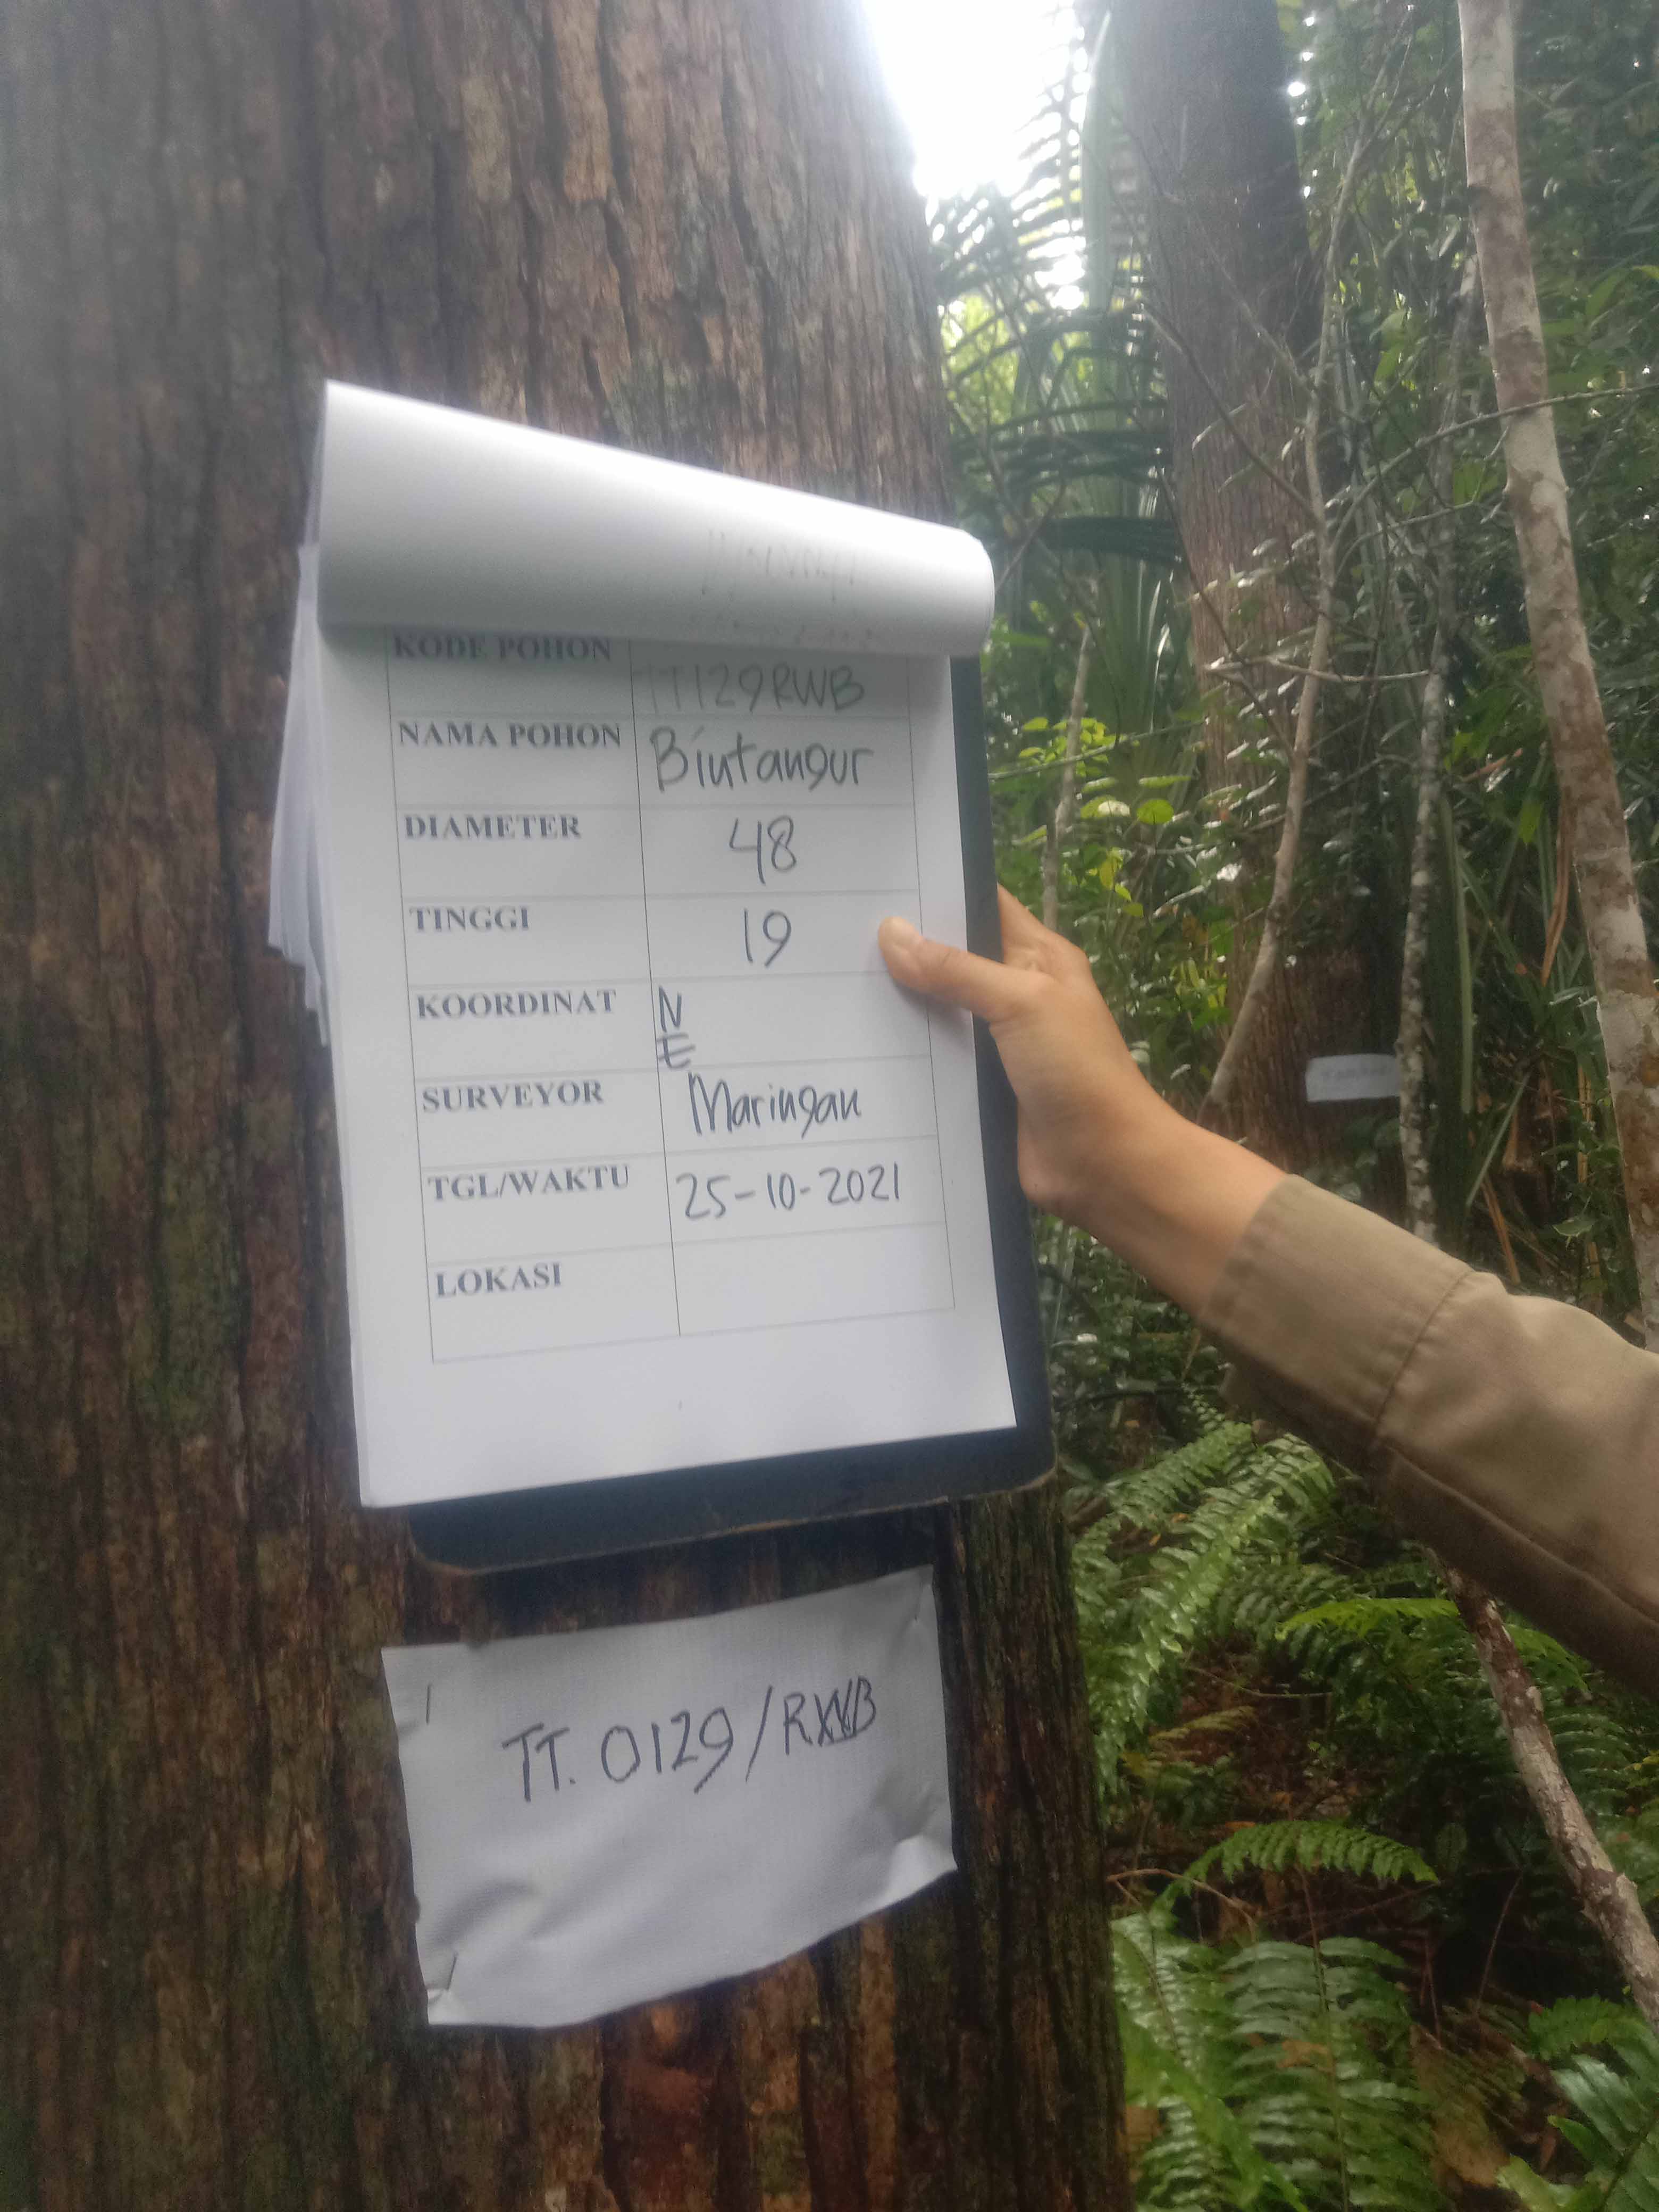 KODE POHON TT129RWB
NAMA POHON Bintangur
DIAMETER 48
TINGGI 19
KOORDINAT N
E
SURVEYOR Maringan
TGL/WAKTU 25-10-2021
LOKASI
TT. 0129/RWB